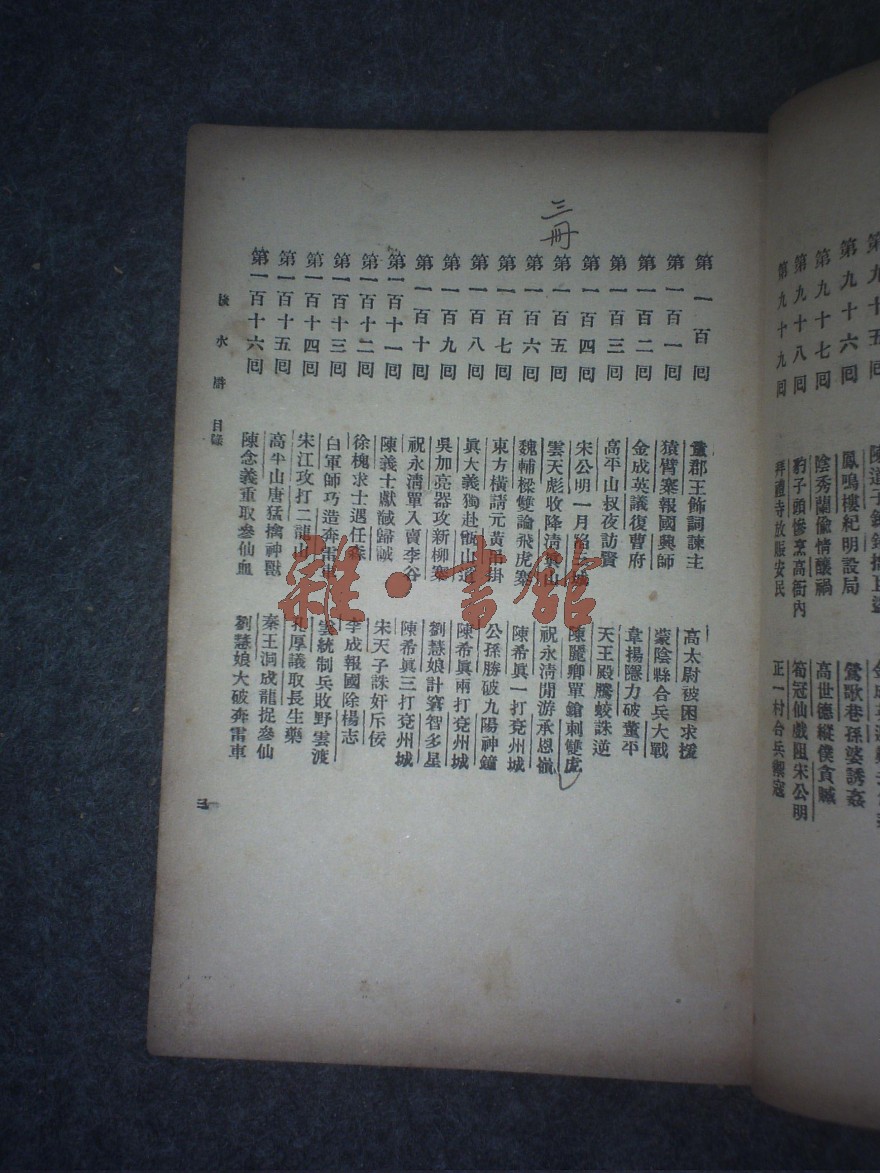 第九十五囘
第九十六囘 鳳鳴樓紀明設局 鶯歌巷孫婆誘姦
第九十七囘 陰秀蘭偷情釀禍 高世德縱僕貪贓
第九十八囘 豹子頭慘烹高衙內 筍冠仙戲阻宋公明
第九十九囘 拜禮寺放賑安民 正一村合兵禦寇
三冊
第一百囘 童郡王飾詞諫主 高太尉被困求援
第一百一囘 猿臂寨報國興師 蒙陰縣合兵大戰
第一百二囘 金成英議復曹府 韋揚隱力破董平
第一百三囘 高平山叔夜訪賢 天王殿騰蛟誅逆
第一百四囘 宋公明一月陷三城 陳麗卿單鎗刺雙虎
第一百五囘 雲天彪收降清眞山 祝永清閒游承恩嶺
第一百六囘 魏輔樑雙論飛虎寨 陳希眞一打兗州城
第一百七囘 東方橫請元黃吊掛 公孫勝破九陽神鐘
第一百八囘 眞大義獨赴甑山道 陳希眞兩打兗州城
第一百九囘 吳加亮器攻新柳寨 劉慧娘計窘智多星
第一百十囘 祝永清單入賣李谷 陳希眞三打兗州城
第一百十一囘 陳義士獻馘歸誠 宋天子誅奸斥佞
第一百十二囘 徐槐求士遇任森 李成報國除楊志
第一百十三囘 白軍師巧造奔雷車 雲統制兵敗野雲渡
第一百十四囘 宋江攻打二龍山 孔厚議取長生藥
第一百十五囘 高平山唐猛擒神獸 秦王洞成龍捉參仙
第一百十六囘 陳念義重取參仙血 劉慧娘大破奔雷車
水滸 目錄
雜·書館